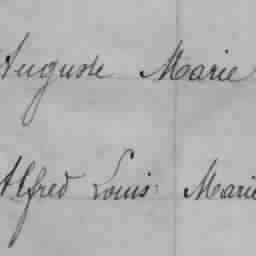 Auguste Marie
Alfred Louis Marie